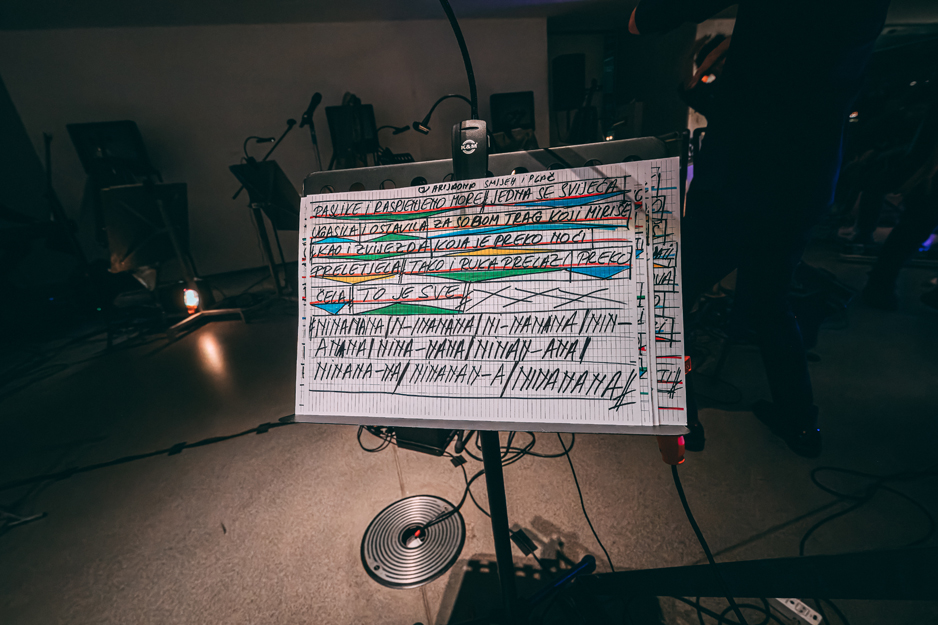 ARIJADNA SMIJEH I PLAČ
PASLIKE I RASPJEVANO MORE / JEDNA SE SVIJEĆA
UGASILA / OSTAVILA ZA SOBOM TRAG KOJI MIRIŠE
KAO I ZVIJEZDA KOJA JE PREKO NOĆI
PRELETJELA / TAKO I PULA PRELAZI PREKO
ČELA / TO JE SVE
NINANANA / N-INANANA / NI-NANANA / NIN-
ANANA / NINA-NANA / NINAN-ANA /
NINANA-NA / NINANAN-A / NINANANA //
K&M